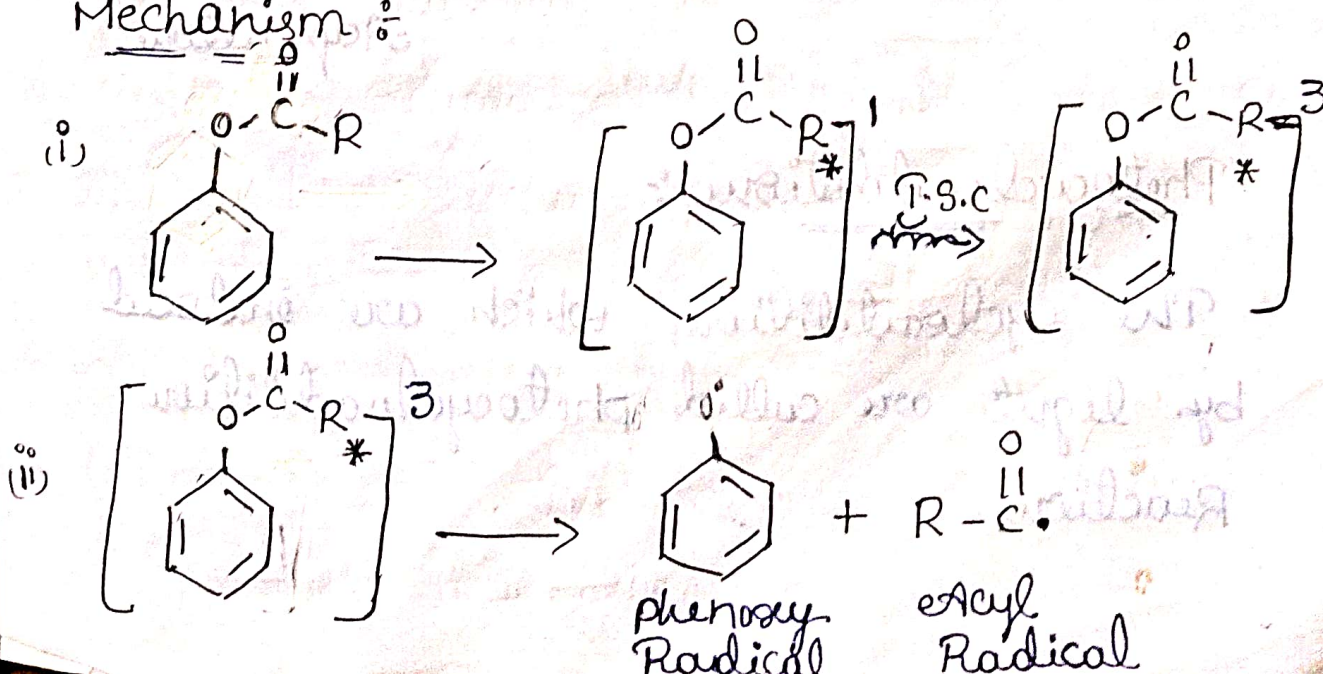 Mechanism :
(i)
O
O C R
[
O
O C R
* ] 1
I.S.C
[
O
O C R
* ] 3
(ii)
[
O
O C R
* ] 3
O•
+
O
R - C•
phenoxy
Radical
Acyl
Radical